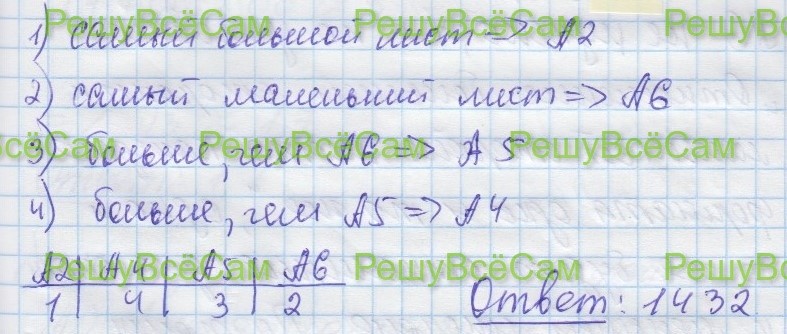 1) самый большой лист => А2
2) самый маленький лист => А6
3) больше, чем А6 => А5
4) больше, чем А5 => А4
А2 | А4 | А5 | А6
1 | 4 | 3 | 2
Ответ: 1432
РешуВсёСам РешуВсёСам РешуВсёСам
РешуВсёСам РешуВсёСам РешуВсёСам
ВсёСам РешуВсёСам РешуВсёСам
РешуВсёСам РешуВсёСам РешуВсёСам
РешуВсёСам РешуВсёСам РешуВсёСам